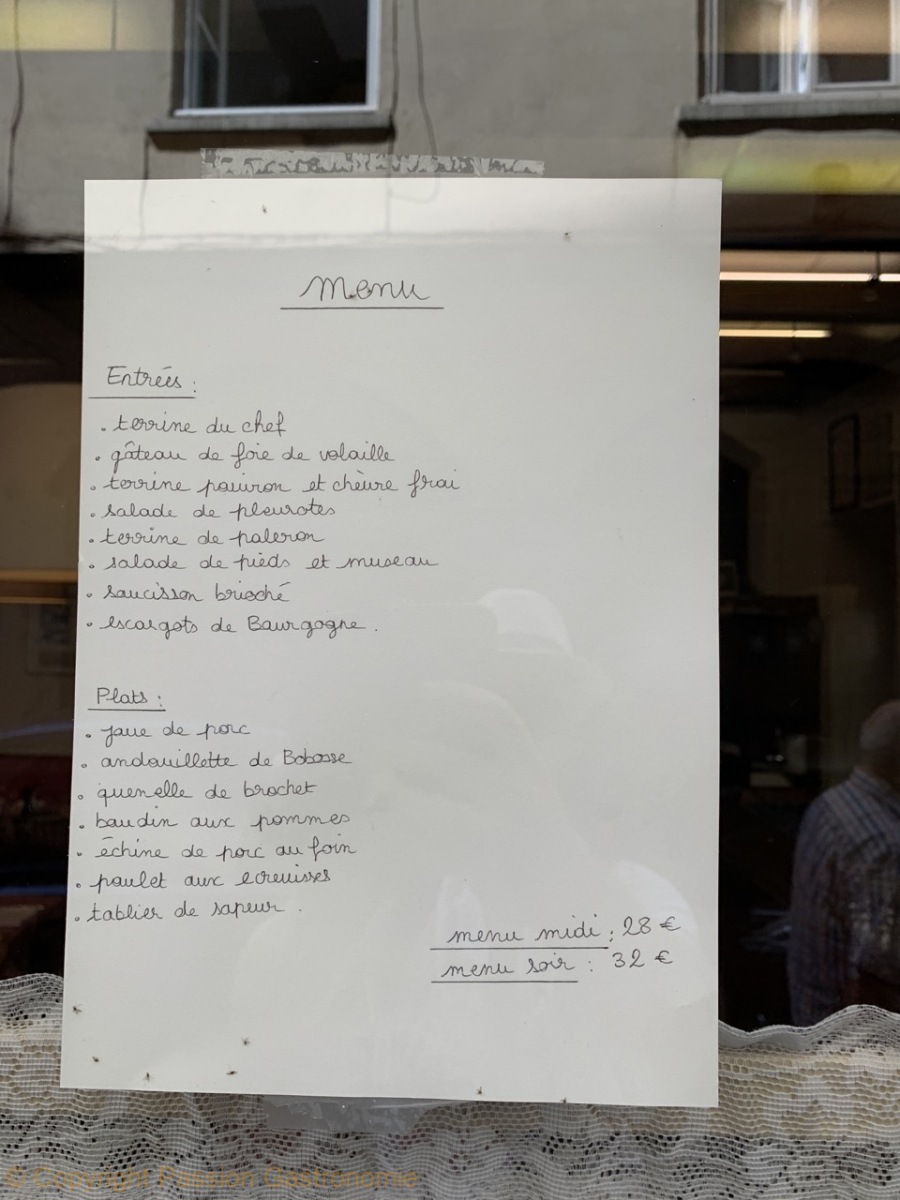 Menu
Entrées :
. terrine du chef
. gâteau de foie de volaille
. terrine poivron et chèvre frai
. salade de pleurotes
. terrine de paleron
. salade de pieds et museau
. saucisson brioché
. escargots de Bourgogne.
Plats :
. joue de porc
. andouillette de Bobosse
. quenelle de brochet
. boudin aux pommes
. échine de porc au foin
. poulet aux ecrevisses
. tablier de sapeur.
menu midi : 28 €
menu soir : 32 €
© Copyright Passion Gastronomie